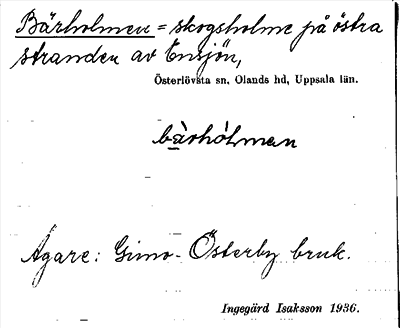 Bärholmen = skogsholme på östra
stranden av Ensjön,
Österlövsta sn, Olands hd, Uppsala län.
bàrhólmen
Ägare: Gimo-Österby bruk.
Ingegärd Isaksson 1936.